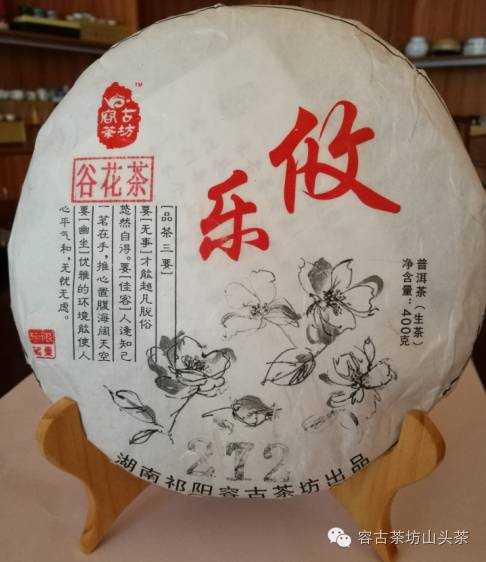 容古茶坊
TM
谷花茶
攸乐
[品茶三要]
要[无事]才能超凡脱俗
悠然自得。要[佳客]人逢知己
一茗在手，推心置腹海阔天空
要[幽坐]优雅的环境能使人
心平气和，无忧无虑。
普洱茶（生茶）
净含量：400克
272
湖南祁阳容古茶坊出品
容古茶坊山头茶